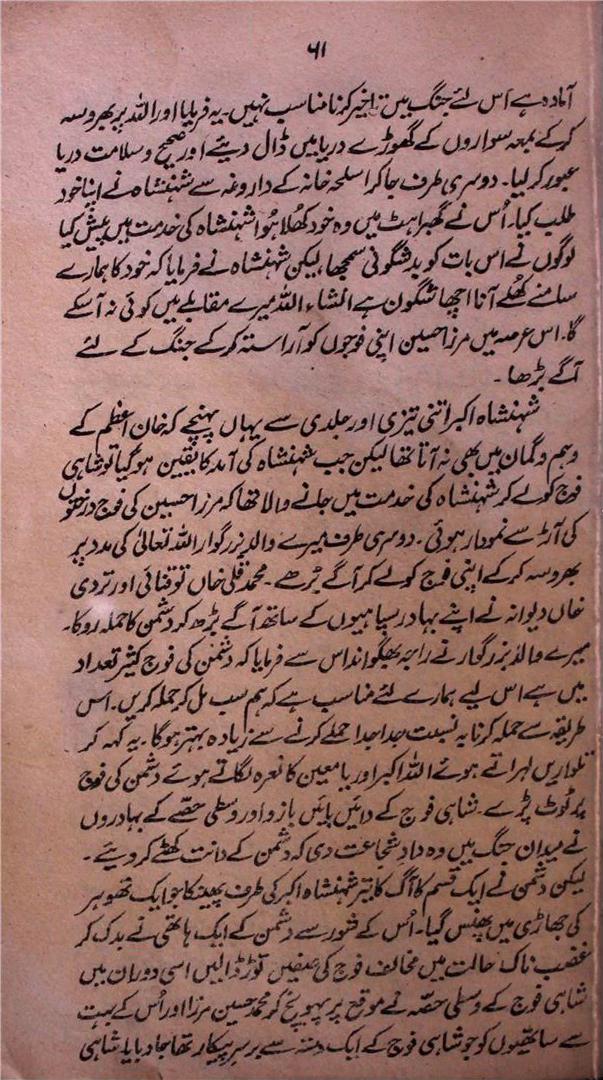 ۶۱
آمادہ ہے اس لئے جنگ میں تاخیر کرنا مناسب نہیں۔ یہ فرمایا اور اللہ پر بھروسہ
کر کے بمعہ سواروں کے گھوڑے دریا میں ڈال دیئے اور صحیح و سلامت دریا
عبور کر لیا۔ دوسری طرف جا کر اسلحہ خانہ کے داروغہ سے شہنشاہ نے اپنا خود
طلب کیا۔ اُس نے گھبراہٹ میں وہ خود کھُلا ہُوا شہنشاہ کی خدمت میں پیش کیا
لوگوں نے اس بات کو بدشگونی سمجھا، لیکن شہنشاہ نے فرمایا کہ خود کا ہمارے
سامنے کھُلے آنا اچھا شگون ہے انشاء اللہ میرے مقابلے میں کوئی نہ آسکے
گا۔ اس عرصہ میں مرزا حسین اپنی فوجوں کو آراستہ کر کے جنگ کے لئے
آگے بڑھا۔
شہنشاہ اکبر اتنی تیزی اور جلدی سے یہاں پہنچے کہ خان اعظم کے
وہم و گمان میں بھی نہ آتا تھا لیکن جب شہنشاہ کی آمد کا یقین ہو گیا تو شاہی
فوج کو لے کر شہنشاہ کی خدمت میں جانے والا تھا کہ مرزا حسین کی فوج درختوں
کی آڑ سے نمودار ہوئی۔ دوسری طرف میرے والد بزرگوار اللہ تعالیٰ کی مدد پر
بھروسہ کر کے اپنی فوج کو لے کر آگے بڑھے۔ محمد قلی خاں توقنائی اور تردی
خاں دیوانہ نے اپنے بہادر سپاہیوں کے ساتھ آگے بڑھ کر دشمن کا حملہ روکا۔
میرے والد بزرگوار نے راجہ بھگوانداس سے فرمایا کہ دشمن کی فوج کثیر تعداد
میں ہے اس لیے ہمارے لئے مناسب ہے کہ ہم سب مل کر حملہ کریں۔ اس
طریقہ سے حملہ کرنا بہ نسبت جدا جدا حملے کرنے سے زیادہ بہتر ہوگا۔ یہ کہہ کر
تلواریں لہراتے ہوئے اللہ اکبر اور یا معین کا نعرہ لگاتے ہوئے دشمن کی فوج
پر ٹوٹ پڑے۔ شاہی فوج کے دائیں بائیں بازو اور وسطی حصے کے بہادروں
نے میدان جنگ میں وہ داد شجاعت دی کہ دشمن کے دانت کھٹے کر دیئے۔
لیکن دشمنی نے ایک قسم کا آگ کا تیر شہنشاہ اکبر کی طرف پھینکا جو ایک تھوہر
کی جھاڑی میں پھنس گیا۔ اُس کے شور سے دشمن کے ایک ہاتھی نے بدک کر
غضب ناک حالت میں مخالف فوج کی صفیں توڑ ڈالیں اسی دوران میں
شاہی فوج کے وسطی حصّہ نے موقع پر پہونچ کر محمد حسین مرزا اور اُس کے بہت
سے ساتھیوں کو جو شاہی فوج کے ایک دستہ سے برسرِ پیکار تھا جا دبایا۔ شاہی